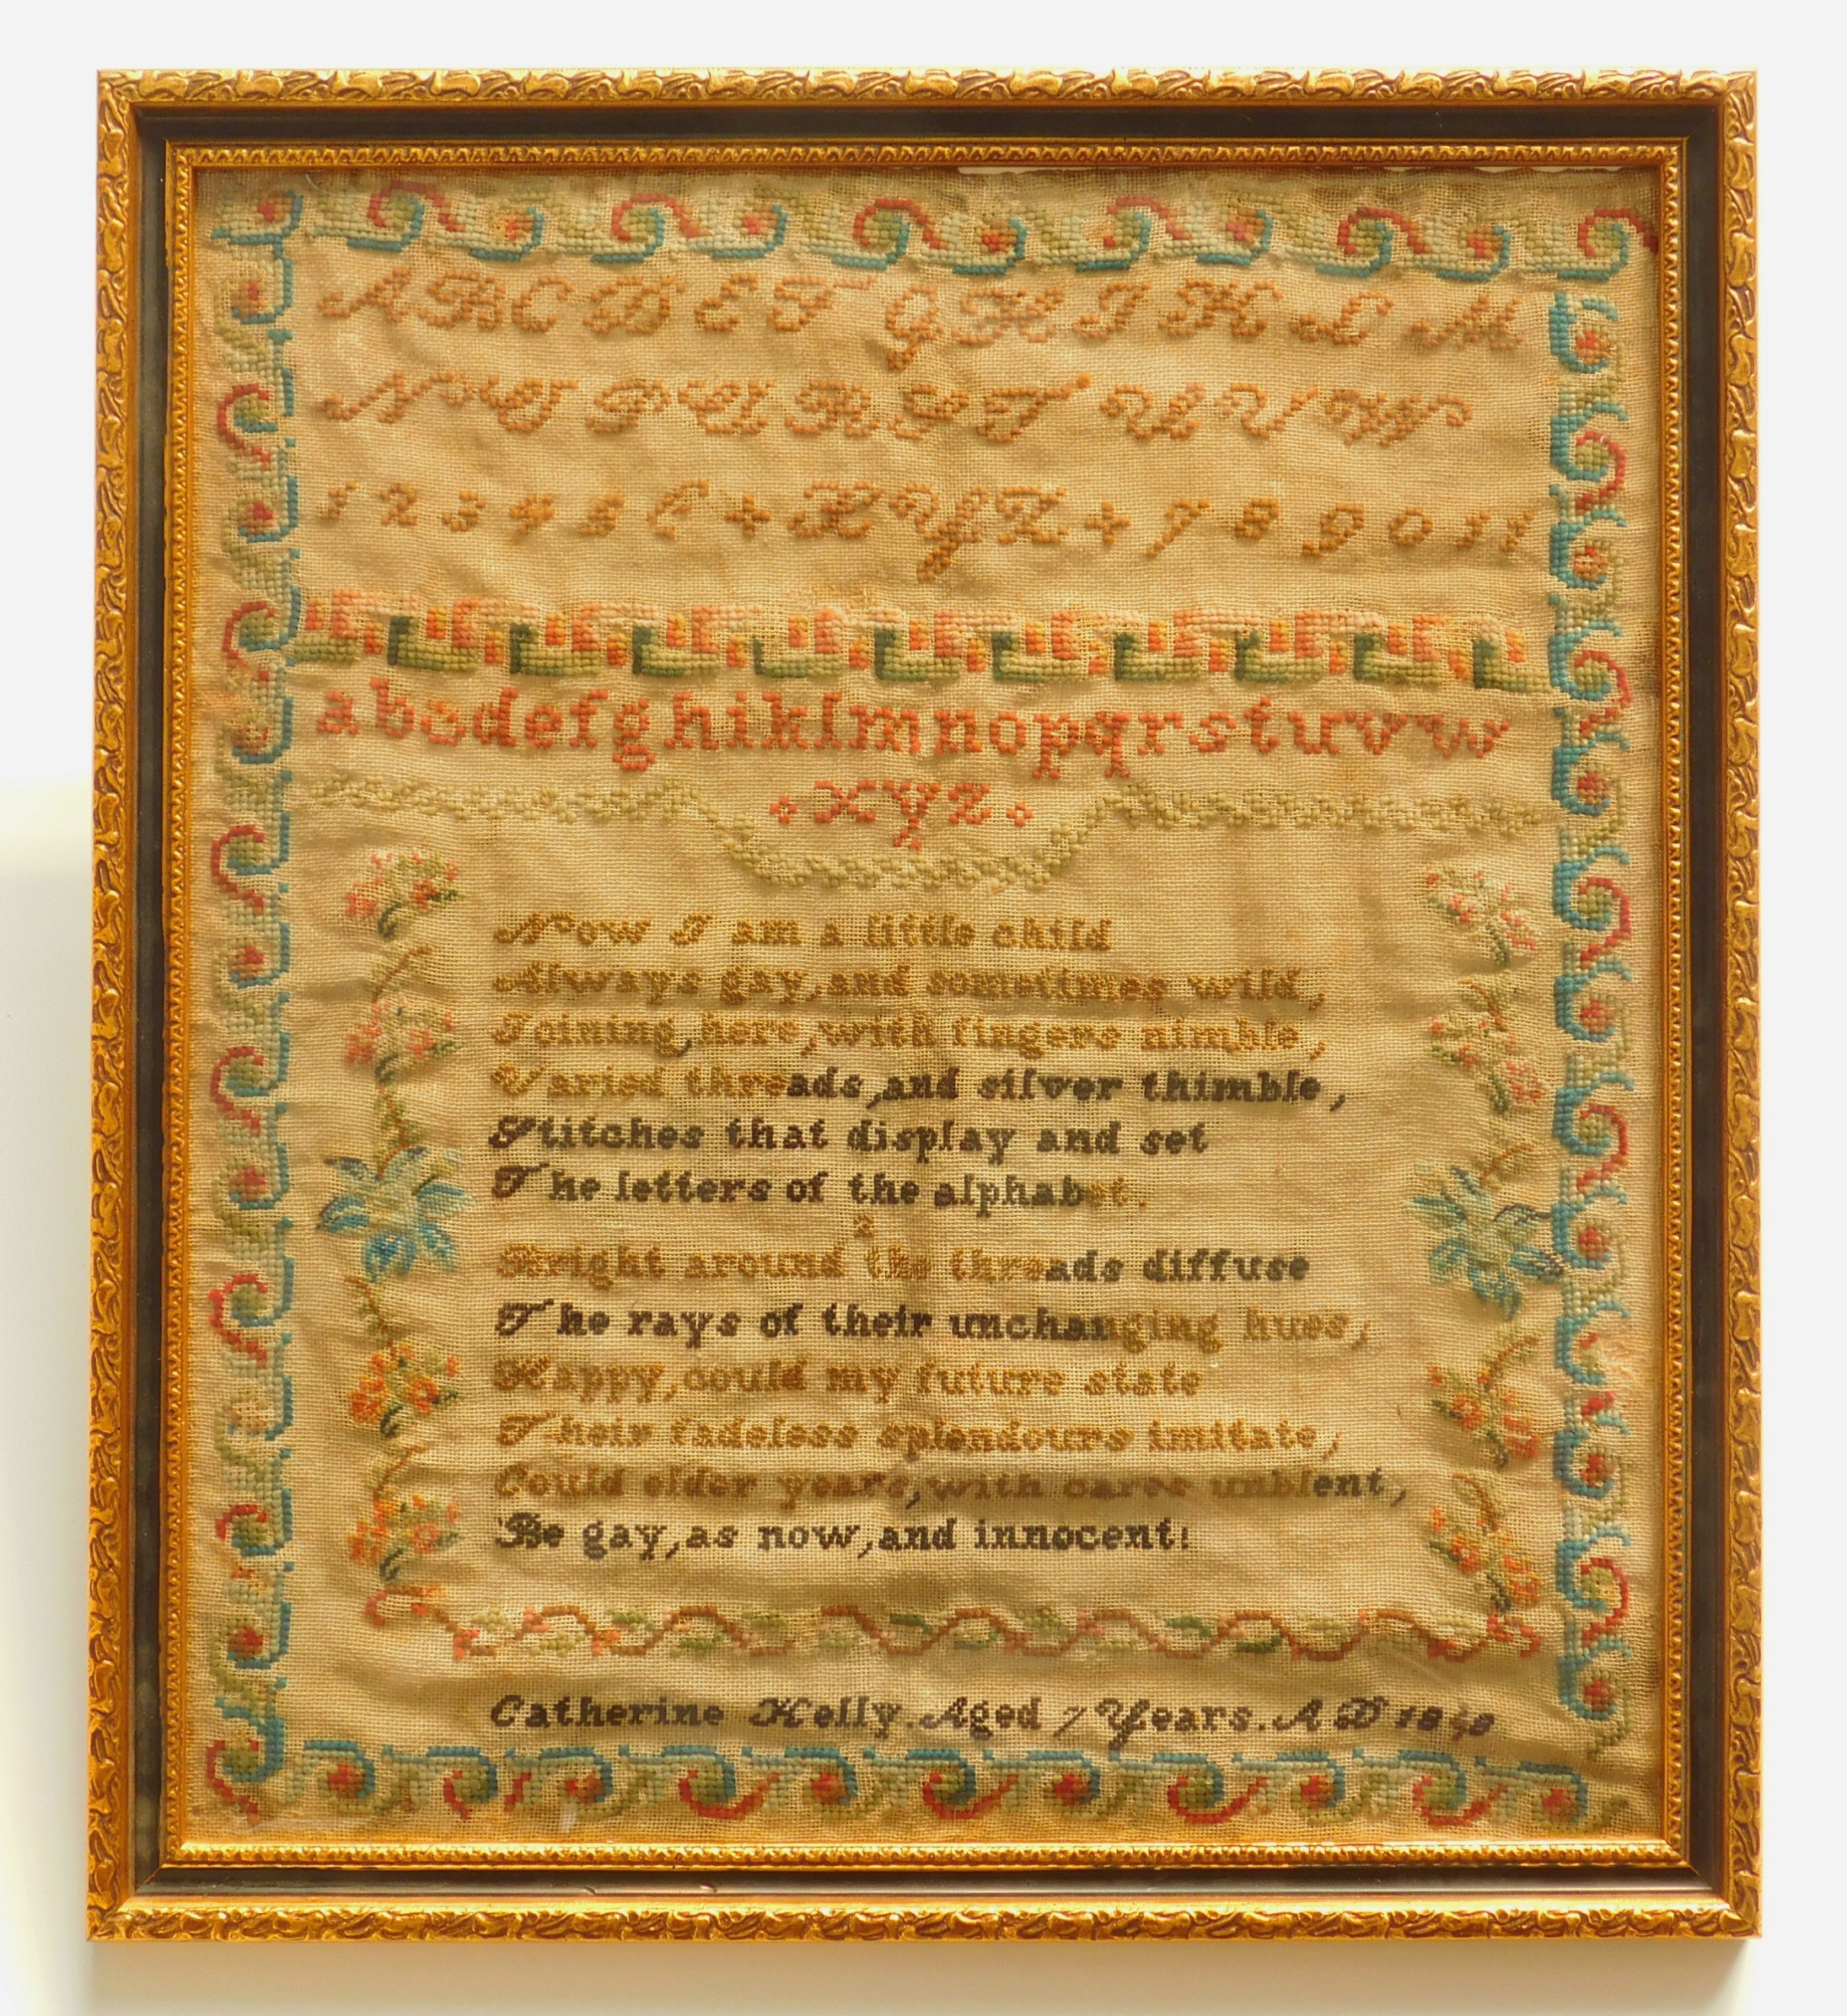 A B C D E F G H I K L M
N O P Q R S T U V W
1 2 3 4 5 6 + X Y Z + 7 8 9 0 11
abcdefghiklmnopqrstuvw
xyz
Now I am a little child
Always gay, and sometimes wild,
Joining, here, with fingers nimble,
Varied threads, and silver thimble,
Stitches that display and set
The letters of the alphabet.
2
Bright around the threads diffuse
The rays of their unchanging hues,
Happy, could my future state
Their fadeless splendours imitate,
Could elder years, with cares unblent,
Be gay, as now, and innocent!
Catherine Kelly. Aged 7 Years. A D